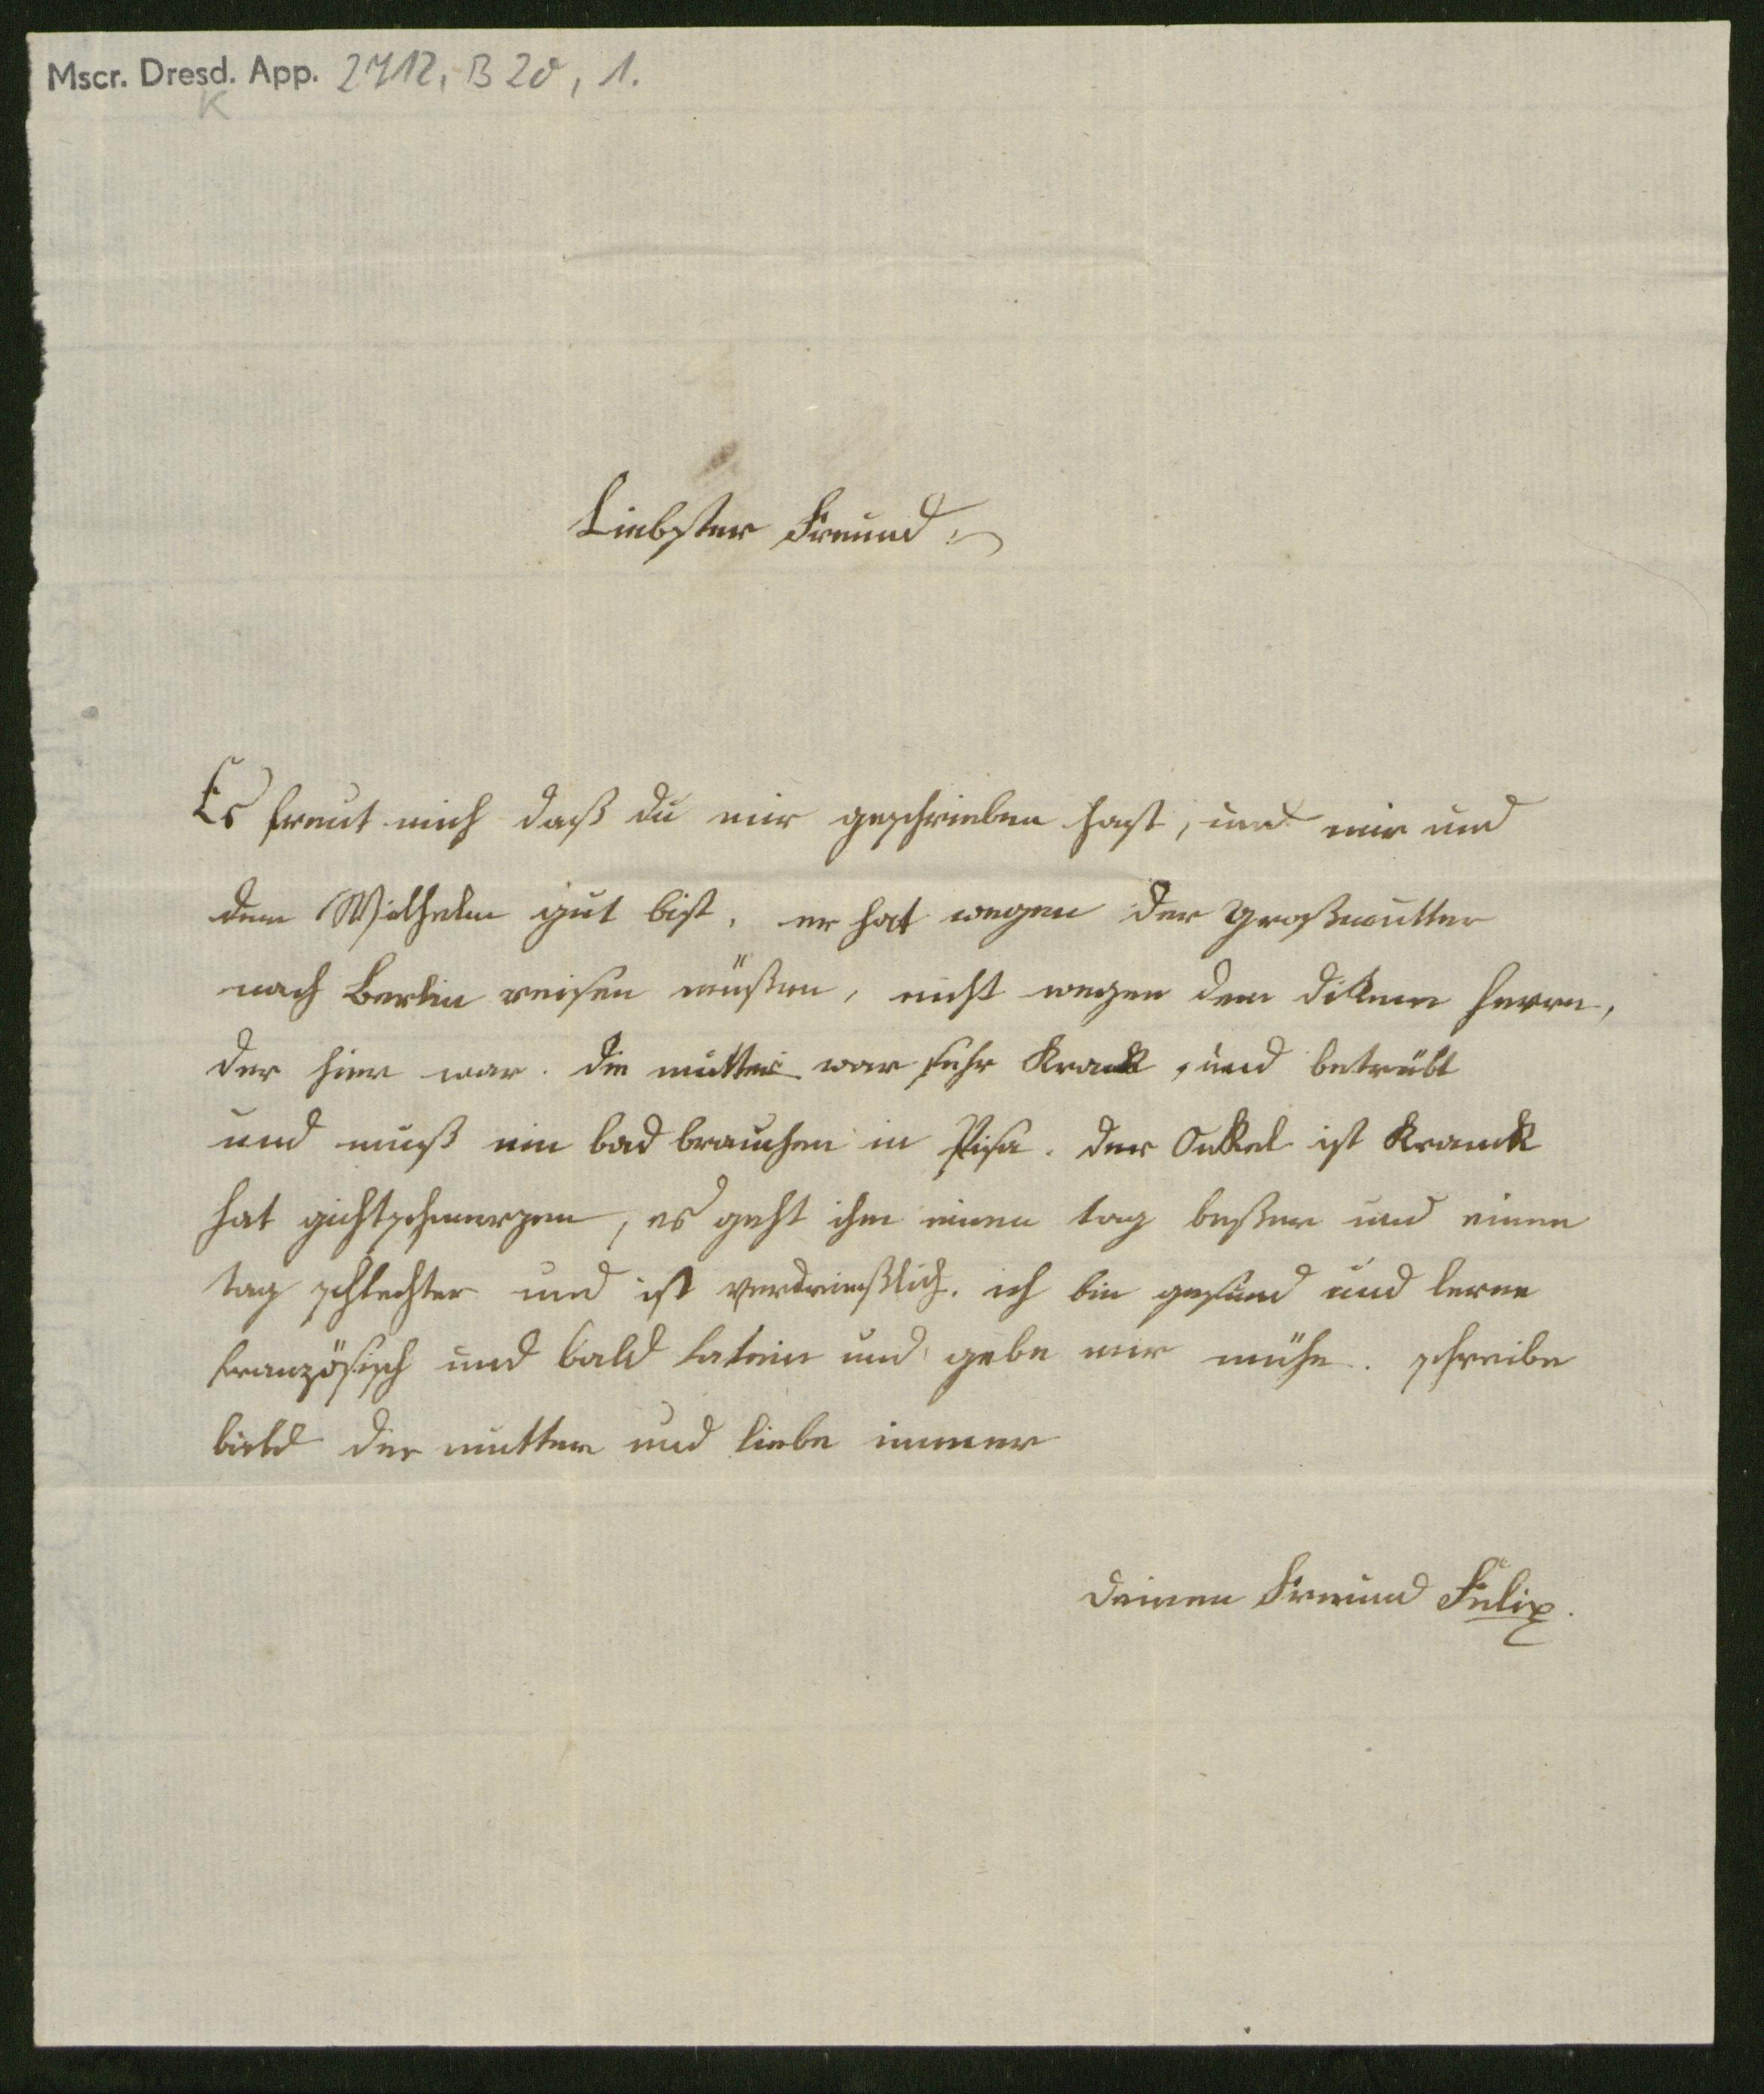 Mscr. Dresd. App. 2712, B 20, 1.
K
Liebster Freund
Es freut mich daß du mir geschrieben hast, und mir und
dem Wilhelm gut bist, er hat wegen der Großmutter
nach Berlin reisen müßen, nicht wegen dem dikenn Herrn,
der hier war. die mutter war sehr Krank, und betrübt
und muß ein bad brauchen in Pisa. der Onkel ist Kranck
hat gichtschmerzen, es geht ihm einen tag beßer und einen
tag schlechter und ist verdrießlich. ich bin gesund und lerne
französisch und bald latein und gebe mir mühe. schreibe
bald der mutter und liebe immer
deinen Freund Felix.